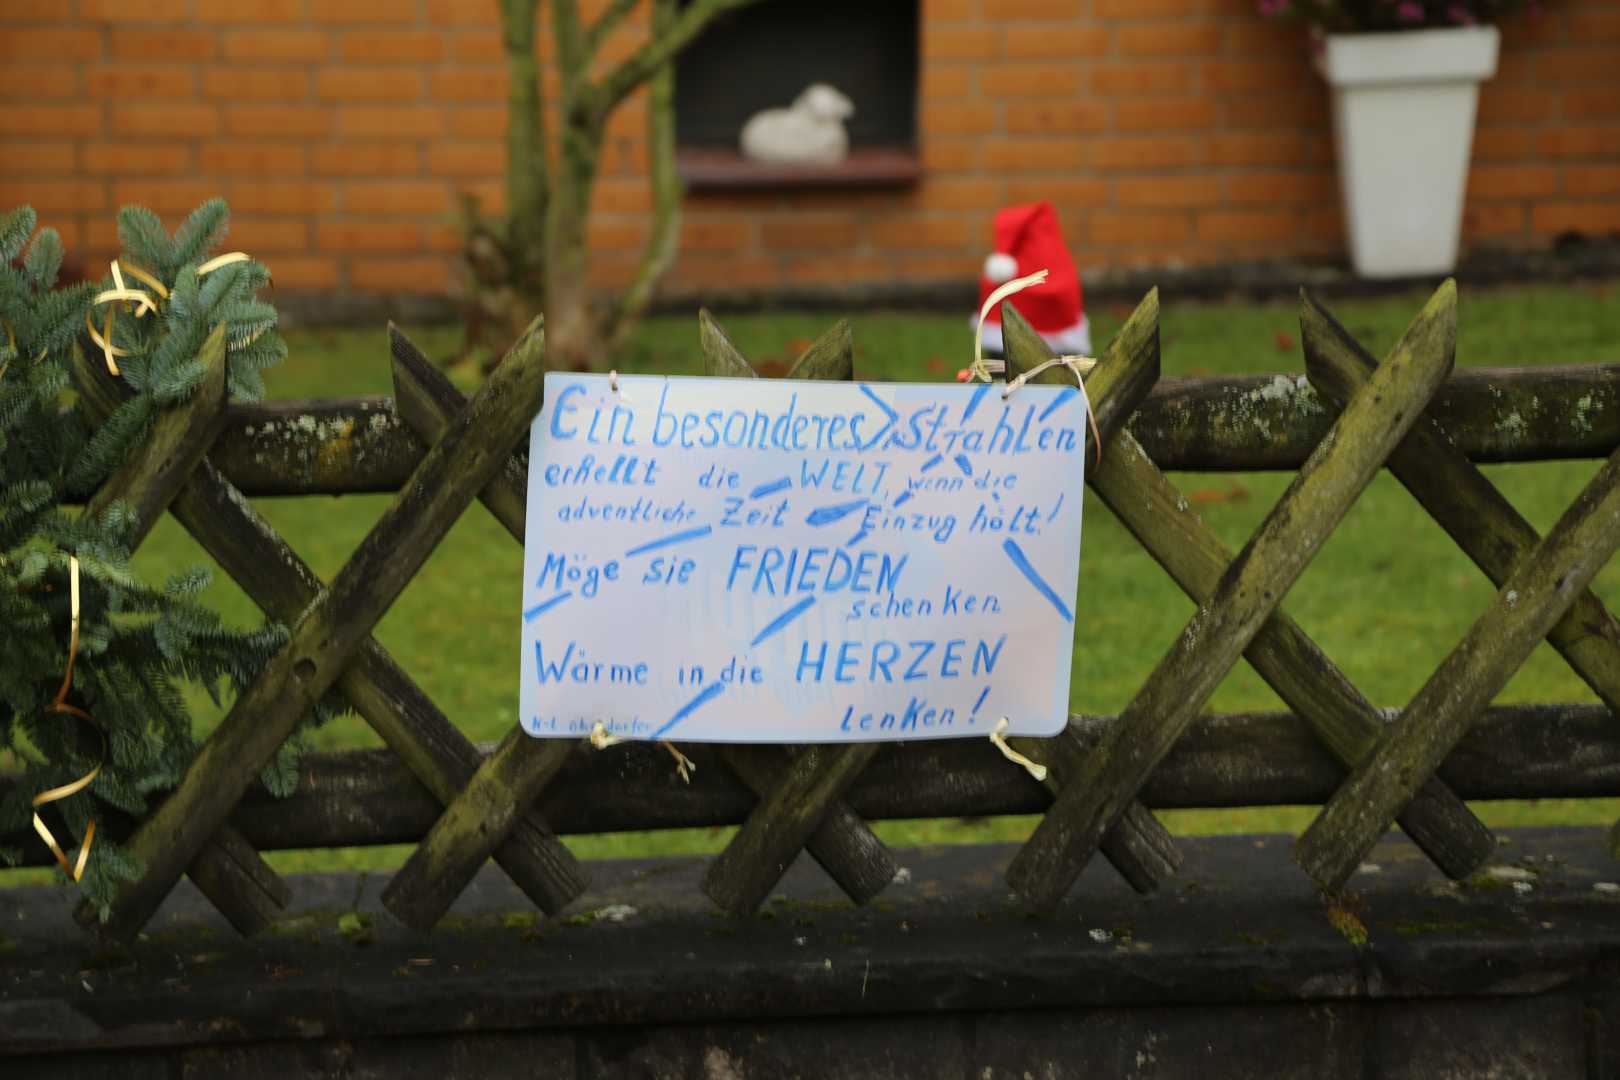 Ein besonderes Strahlen
erhellt die WELT, wenn die
adventliche Zeit Einzug hält!
Möge sie FRIEDEN
schenken
Wärme in die HERZEN
lenken!